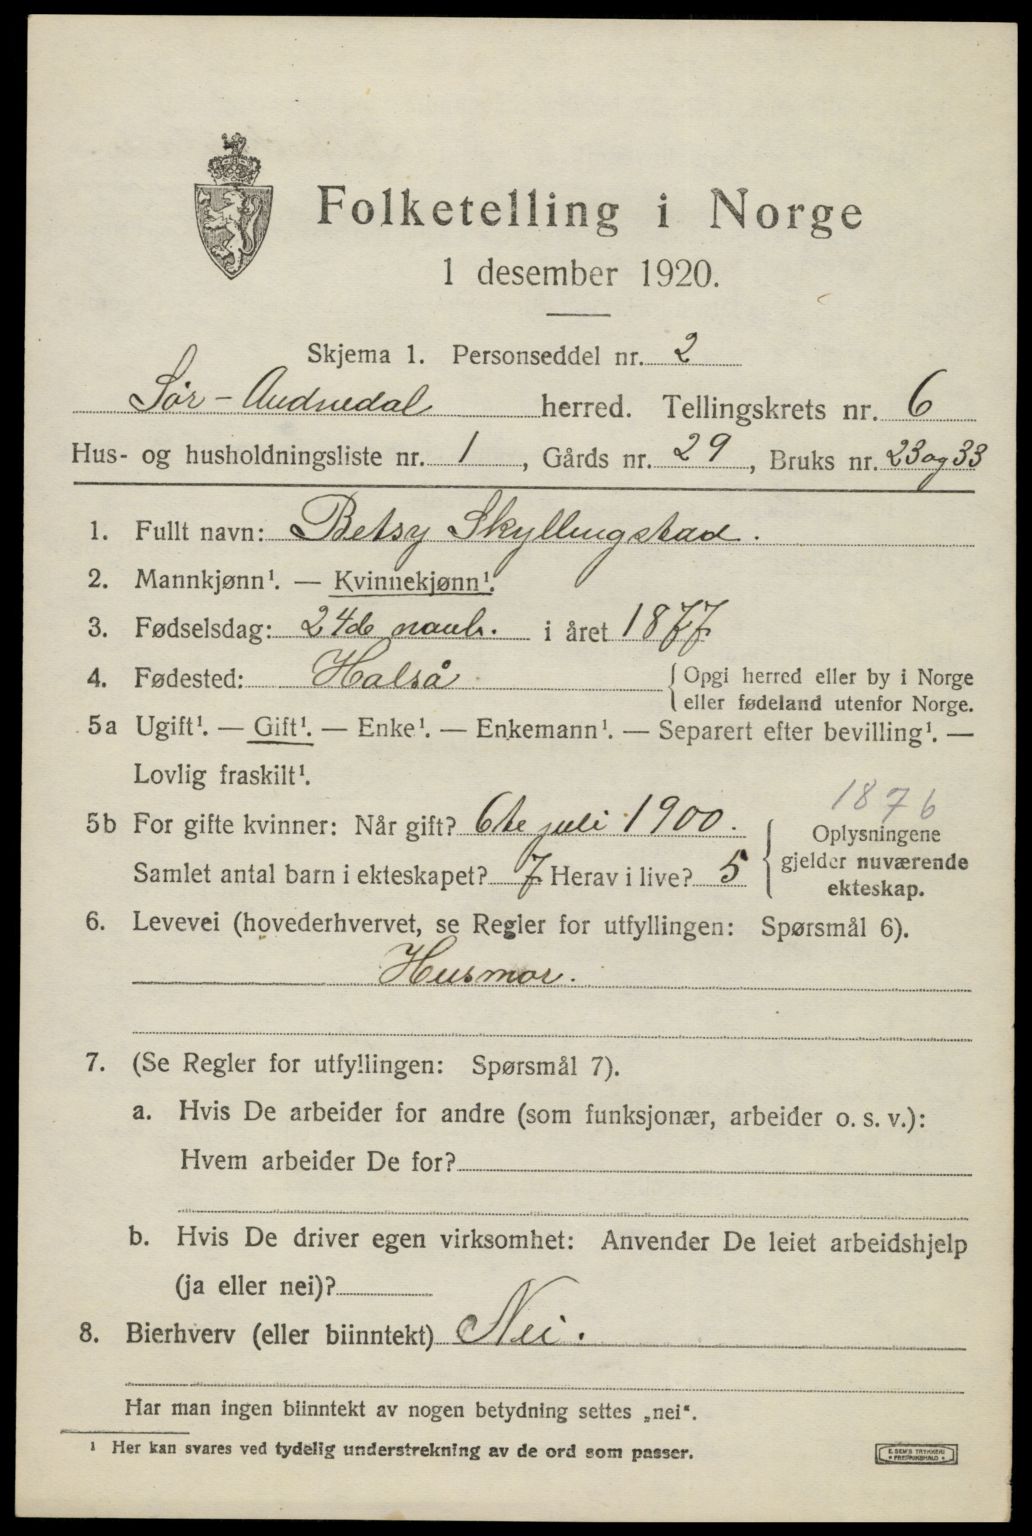 Folketelling i Norge
1 desember 1920.
Skjema 1. Personseddel nr. 2
Sør-Audnedal herred. Tellingskrets nr. 6
Hus- og husholdningsliste nr. 1, Gårds nr. 29, Bruks nr. 23 og 33
1. Fullt navn: Betsy Skyllingstad.
2. Mannkjønn¹. — Kvinnekjønn¹.
3. Fødselsdag: 24de novbr. i året 1877
4. Fødested: Halså
{ Opgi herred eller by i Norge
eller fødeland utenfor Norge.
5a Ugift¹. — Gift¹. — Enke¹. — Enkemann¹. — Separert efter bevilling¹. —
Lovlig fraskilt¹.
1876
5b For gifte kvinner: Når gift? 6te juli 1900.
Samlet antal barn i ekteskapet? 7 Herav i live? 5
{ Oplysningene
gjelder nuværende
ekteskap.
6. Levevei (hovederhvervet, se Regler for utfyllingen: Spørsmål 6).
Husmor.
7. (Se Regler for utfyllingen: Spørsmål 7).
a. Hvis De arbeider for andre (som funksjonær, arbeider o. s. v.):
Hvem arbeider De for?
b. Hvis De driver egen virksomhet: Anvender De leiet arbeidshjelp
(ja eller nei)?
8. Bierhverv (eller biinntekt) Nei.
Har man ingen biinntekt av nogen betydning settes „nei“.
¹ Her kan svares ved tydelig understrekning av de ord som passer.
E. SEM'S TRYKKERI
FREDRIKSHALD